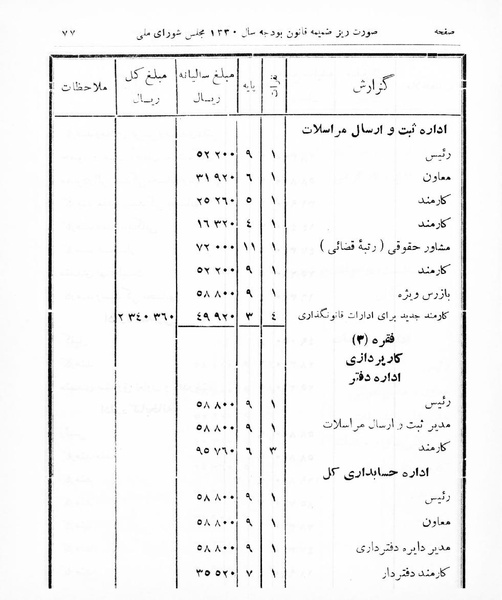 صفحه صورت ریز ضمیمه قانون بودجه سال ۱۳۳۰ مجلس شورای ملی ۷۷
گزارش نفرات پایه مبلغ سالیانه ریال مبلغ کل ریال ملاحظات
اداره ثبت و ارسال مراسلات
رئیس ۱ ۹ ۵۲ ۲۰۰
معاون ۱ ۶ ۳۱ ۹۲۰
کارمند ۱ ۵ ۲۵ ۲۶۰
کارمند ۱ ٤ ۱۶ ۳۲۰
مشاور حقوقی ( رتبهٔ قضائی ) ۱ ۱۱ ۷۲ ۰۰۰
کارمند ۱ ۹ ۵۲ ۲۰۰
بازرس ویژه ۱ ۹ ۵۸ ۸۰۰
کارمند جدید برای ادارات قانونگذاری ٤ ۳ ٤۹ ۹۲۰ ۲ ۳٤۰ ۳۶۰
فقره (۳)
کارپردازی
اداره دفتر
رئیس ۱ ۹ ۵۸ ۸۰۰
مدیر ثبت و ارسال مراسلات ۱ ۹ ۵۸ ۸۰۰
کارمند ۳ ۶ ۹۵ ۷۶۰
اداره حسابداری کل
رئیس ۱ ۹ ۵۸ ۸۰۰
معاون ۱ ۹ ۵۸ ۸۰۰
مدیر دایره دفترداری ۱ ۹ ۵۸ ۸۰۰
کارمند دفتردار ۱ ۷ ۳۵ ۵۲۰